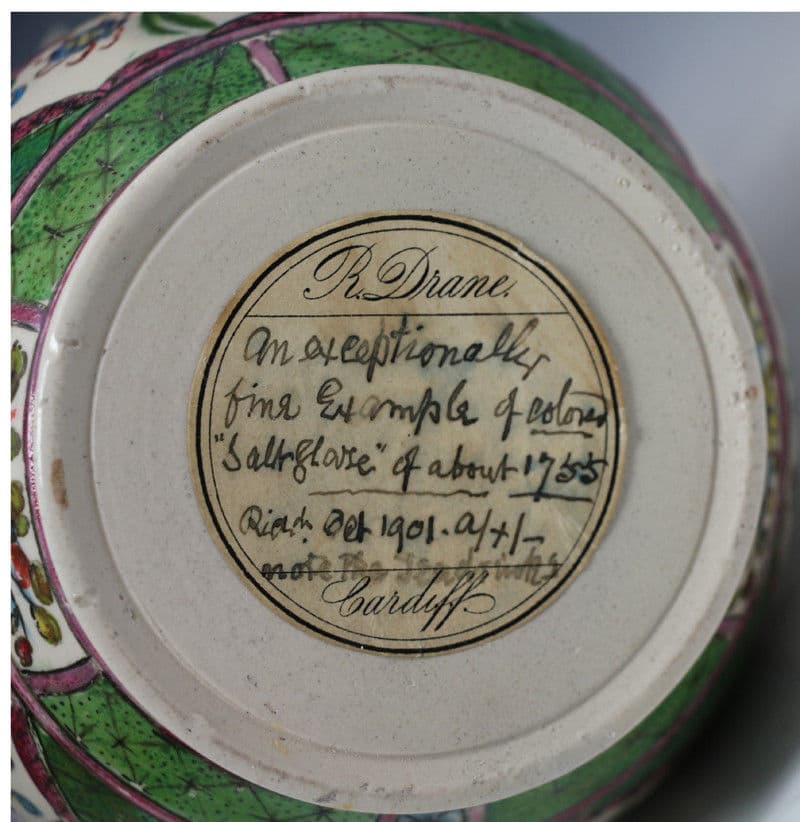 R. Drane.
An exceptionally
fine Example of colored
"Salt-Glaze" of about 1755
Oct 1901. a/+/-
note the
Cardiff.